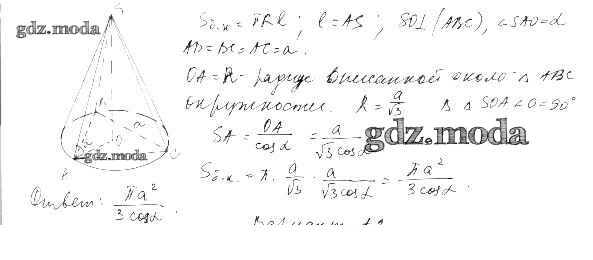 S
gdz.moda
Sб.к. = πRl ; l = AS ; SO⊥(ABC), ∠SAO=α
AB=BC=AC=a.
OA=R - радиус вписанной около Δ ABC
окружности. R = a/√3 В Δ SOA ∠O=90°
SA = OA/cosα = a/(√3 cosα)
gdz.moda
Sб.к. = π · a/√3 · a/(√3 cosα) = πa²/(3 cosα).
gdz.moda
Ответ: πa²/(3 cosα).